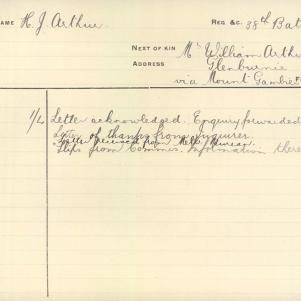 NAME H. J. Arthur. REG. &C. 38th Bat
NEXT OF KIN Mr William Arthu
ADDRESS Glenburnie
via Mount Gambier
1/4 Letter acknowledged. Enquiry forwarded
Letter of thanks from enquirer.
Letter received from Melb. Bureau.
Slips from Commis. Information there